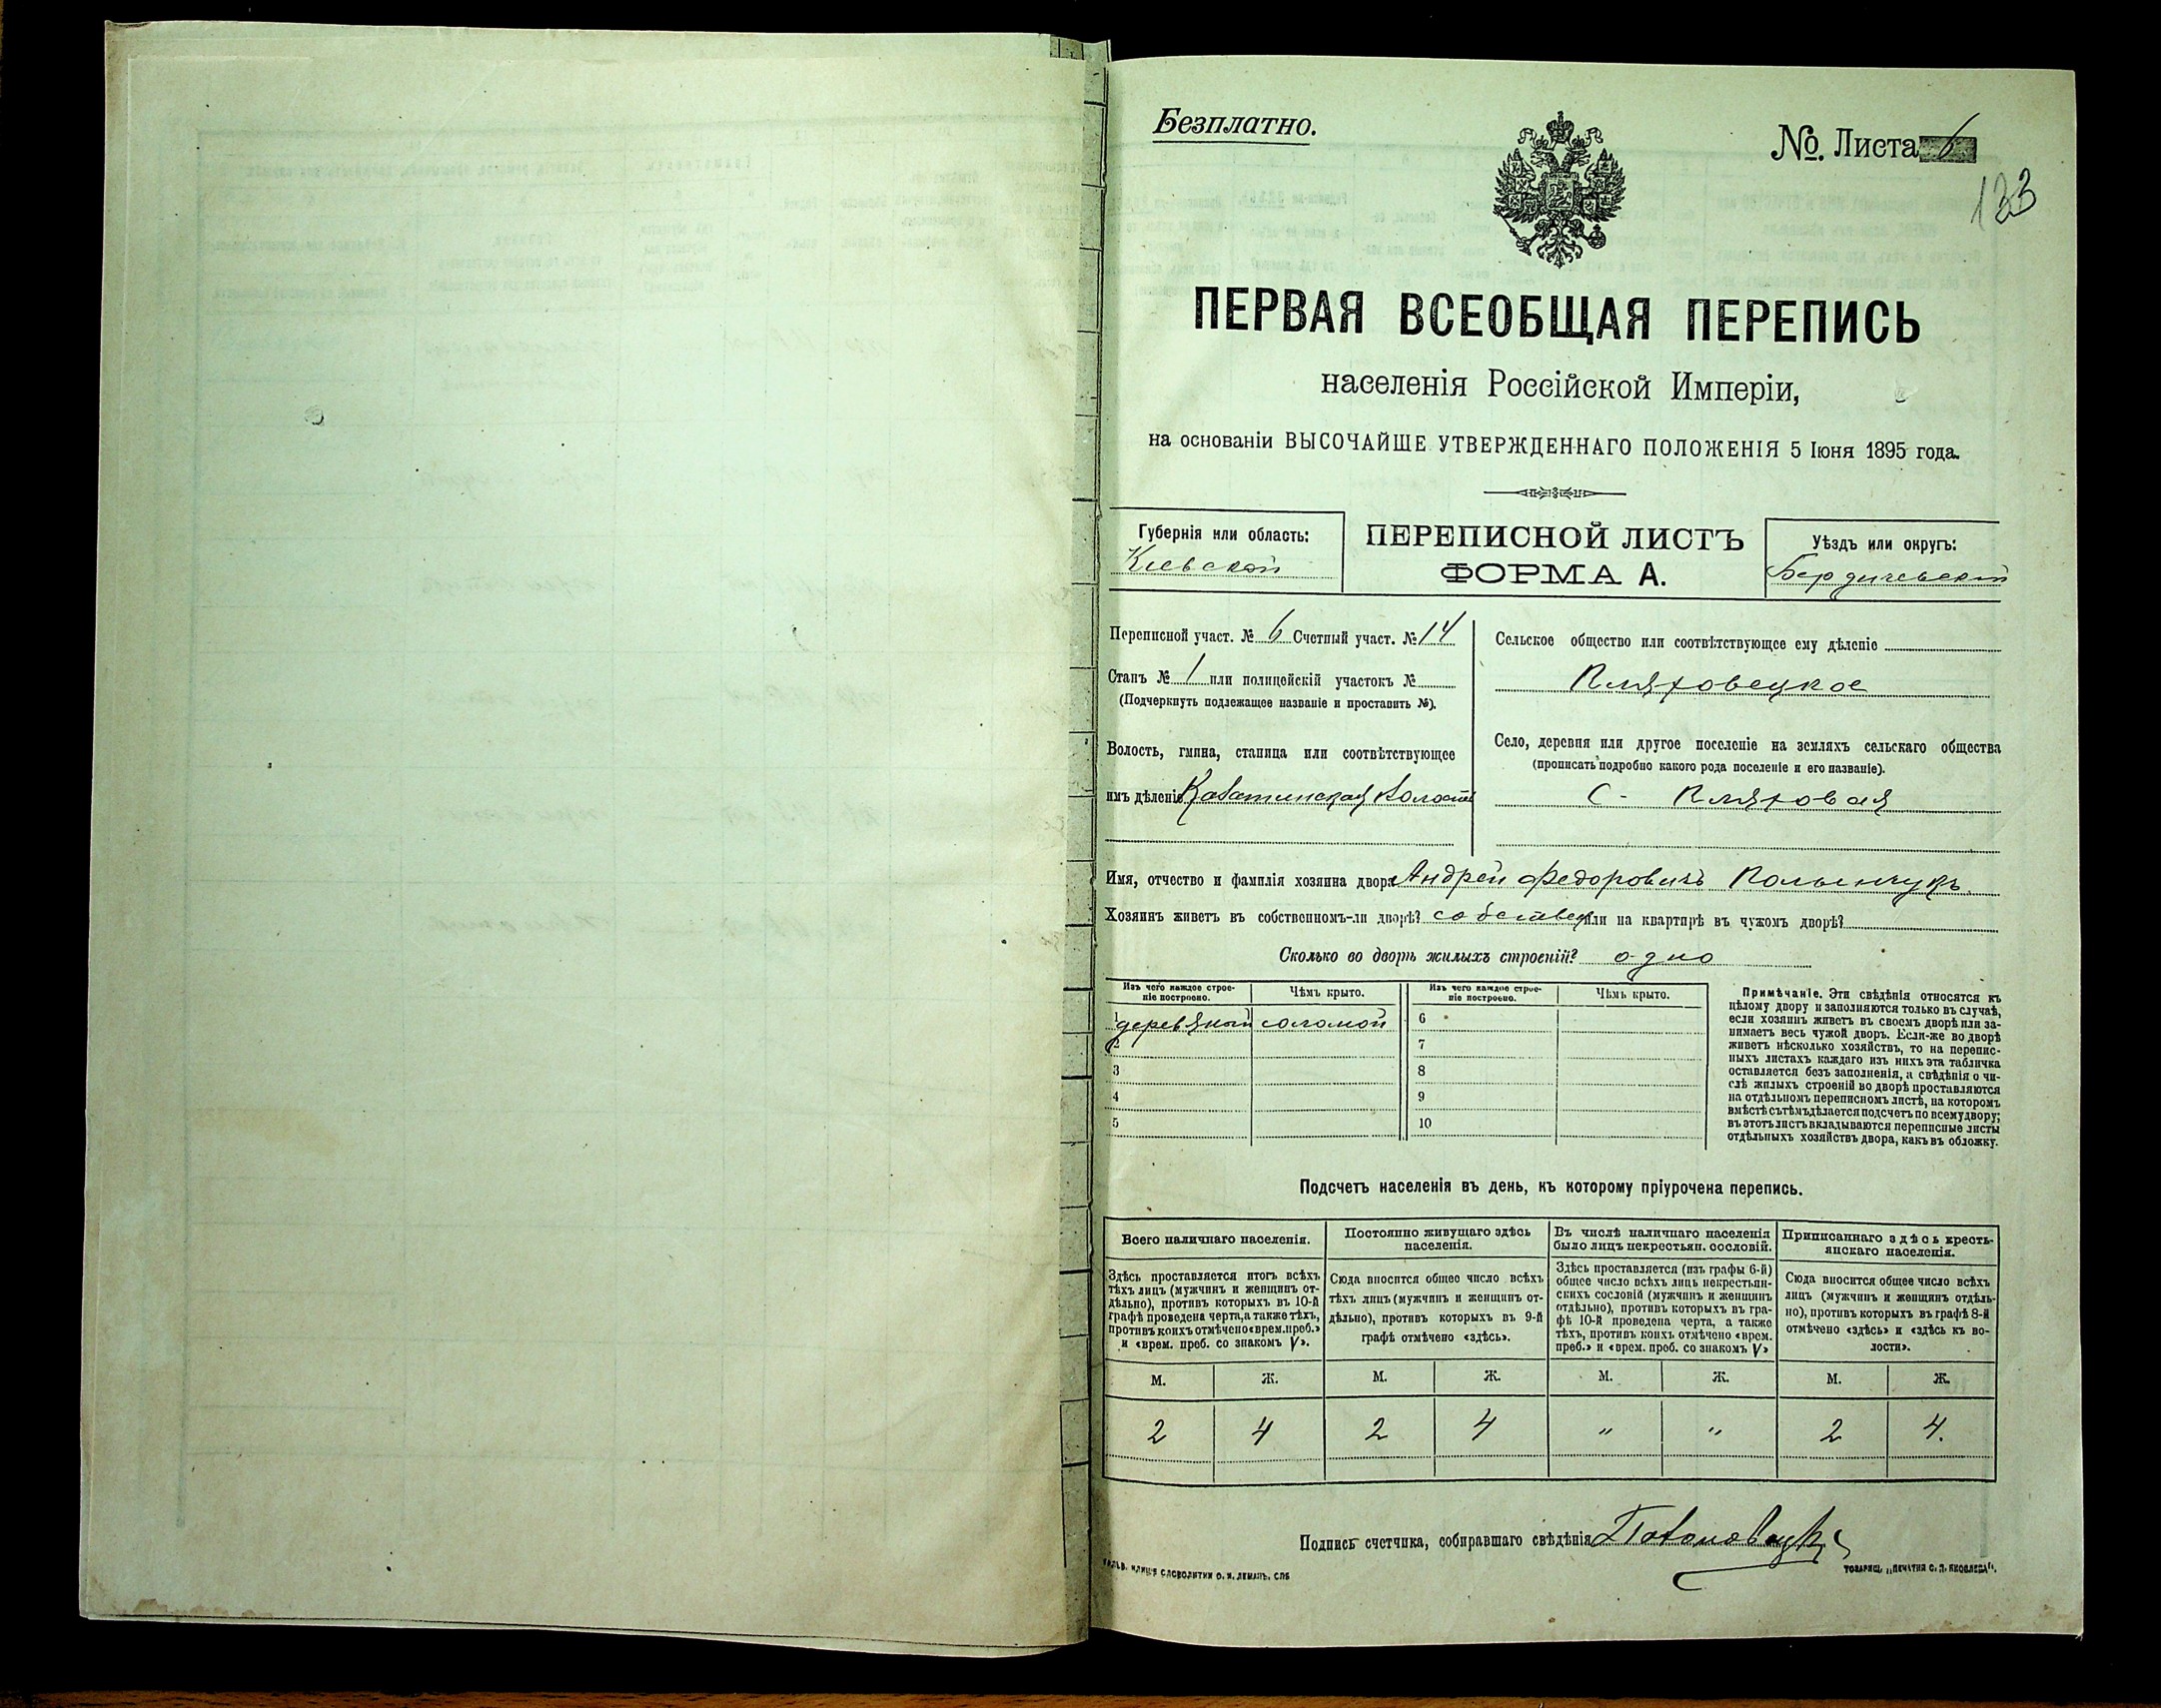 Безплатно.
№. Листа 6
123
ПЕРВАЯ ВСЕОБЩАЯ ПЕРЕПИСЬ
населенія Россійской Имперіи,
на основаніи ВЫСОЧАЙШЕ УТВЕРЖДЕННАГО ПОЛОЖЕНІЯ 5 Іюня 1895 года.
Губернія или область:
Кіевской
ПЕРЕПИСНОЙ ЛИСТЪ
ФОРМА А.
Уѣздъ или округъ:
Бердичевскій
Переписной участ. № 6 Счетный участ. № 14
Станъ № 1 или полицейскій участокъ №
(Подчеркнуть подлежащее названіе и проставить №).
Волость, гмина, станица или соотвѣтствующее
имъ дѣленіе Казатинская волость
Сельское общество или соотвѣтствующее ему дѣленіе
Пляховецкое
Село, деревня или другое поселеніе на земляхъ сельскаго общества
(прописать подробно какого рода поселеніе и его названіе).
С. Пляховая
Имя, отчество и фамилія хозяина двора Андрей Федоровичъ
Хозяинъ живетъ въ собственномъ-ли дворѣ? собствен или на квартирѣ въ чужомъ дворѣ?
Сколько во дворѣ жилыхъ строеній? одно
Изъ чего каждое строе-
ніе построено.
Чѣмъ крыто.
Изъ чего каждое строе-
ніе построено.
Чѣмъ крыто.
1 деревяный соломой
2
3
4
5
6
7
8
9
10
Примѣчаніе. Эти свѣдѣнія относятся къ
цѣлому двору и заполняются только въ случаѣ,
если хозяинъ живетъ въ своемъ дворѣ или за-
нимаетъ весь чужой дворъ. Если-же во дворѣ
живетъ нѣсколько хозяйствъ, то на перепис-
ныхъ листахъ каждаго изъ нихъ эта табличка
оставляется безъ заполненія, а свѣдѣнія о чи-
слѣ жилыхъ строеній во дворѣ проставляются
на отдѣльномъ переписномъ листѣ, на которомъ
вмѣстѣ съ тѣмъ дѣлается подсчетъ по всему двору;
въ этотъ листъ вкладываются переписные листы
отдѣльныхъ хозяйствъ двора, какъ въ обложку.
Подсчетъ населенія въ день, къ которому пріурочена перепись.
Всего наличнаго населенія.
Здѣсь проставляется итогъ всѣхъ
тѣхъ лицъ (мужчинъ и женщинъ от-
дѣльно), противъ которыхъ въ 10-й
графѣ проведена черта, а также тѣхъ,
противъ коихъ отмѣчено «врем. преб.»
и «врем. преб. со знакомъ V».
Постоянно живущаго здѣсь
населенія.
Сюда вносится общее число всѣхъ
тѣхъ лицъ (мужчинъ и женщинъ от-
дѣльно), противъ которыхъ въ 9-й
графѣ отмѣчено «здѣсь».
Въ числѣ наличнаго населенія
было лицъ некрестьян. сословій.
Здѣсь проставляется (изъ графы 6-й)
общее число всѣхъ лицъ некрестьян-
скихъ сословій (мужчинъ и женщинъ
отдѣльно), противъ которыхъ въ гра-
фѣ 10-й проведена черта, а также
тѣхъ, противъ коихъ отмѣчено «врем.
преб.» и «врем. преб. со знакомъ V»
Приписаннаго здѣсь кресть-
янскаго населенія.
Сюда вносится общее число всѣхъ
лицъ (мужчинъ и женщинъ отдѣль-
но), противъ которыхъ въ графѣ 8-й
отмѣчено «здѣсь» и «здѣсь къ во-
лости».
М. Ж. М. Ж. М. Ж. М. Ж.
2 4 2 4 " " 2 4.
Подпись счетчика, собиравшаго свѣдѣнія
СЛОВОЛИТНИ О. И. ЛЕМАНЪ, СПБ
ТОВАРИЩ. „ПЕЧАТНЯ С. П. ЯКОВЛЕВА".